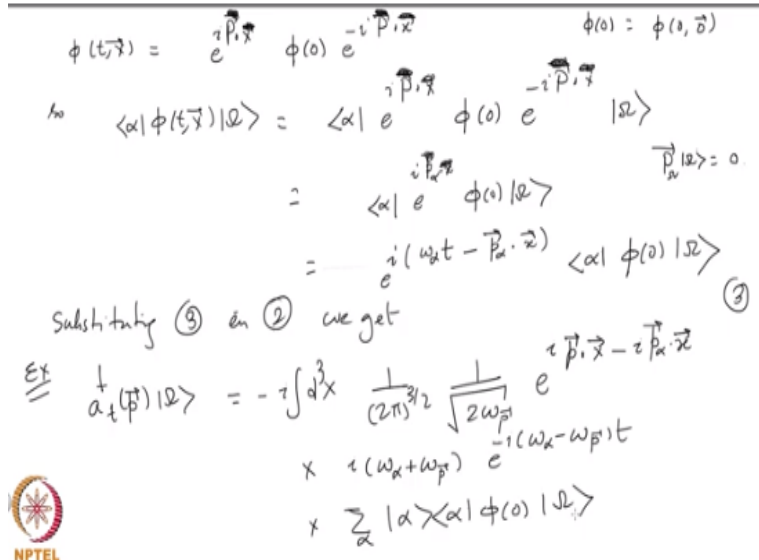 ϕ(t,x⃗) = e^{iP.x} ϕ(0) e^{-iP.x} ϕ(0) = ϕ(0, 0⃗)
so ⟨α| ϕ(t,x⃗) |Ω⟩ = ⟨α| e^{iP.x} ϕ(0) e^{-iP.x} |Ω⟩
P⃗_Ω |Ω⟩ = 0
= ⟨α| e^{iP_α x} ϕ(0) |Ω⟩
= e^{i(ω_α t - p⃗_α . x⃗)} ⟨α| ϕ(0) |Ω⟩
③
Substituting ③ in ② we get
Ex a_t^†(p⃗) |Ω⟩ = -i ∫ d³x 1/(2π)^{3/2} 1/√(2ω_p⃗) e^{i p⃗.x⃗ - i p⃗_α.x⃗}
× i(ω_α + ω_p⃗) e^{-i(ω_α - ω_p⃗)t}
× Σ_α |α⟩⟨α| ϕ(0) |Ω⟩
NPTEL